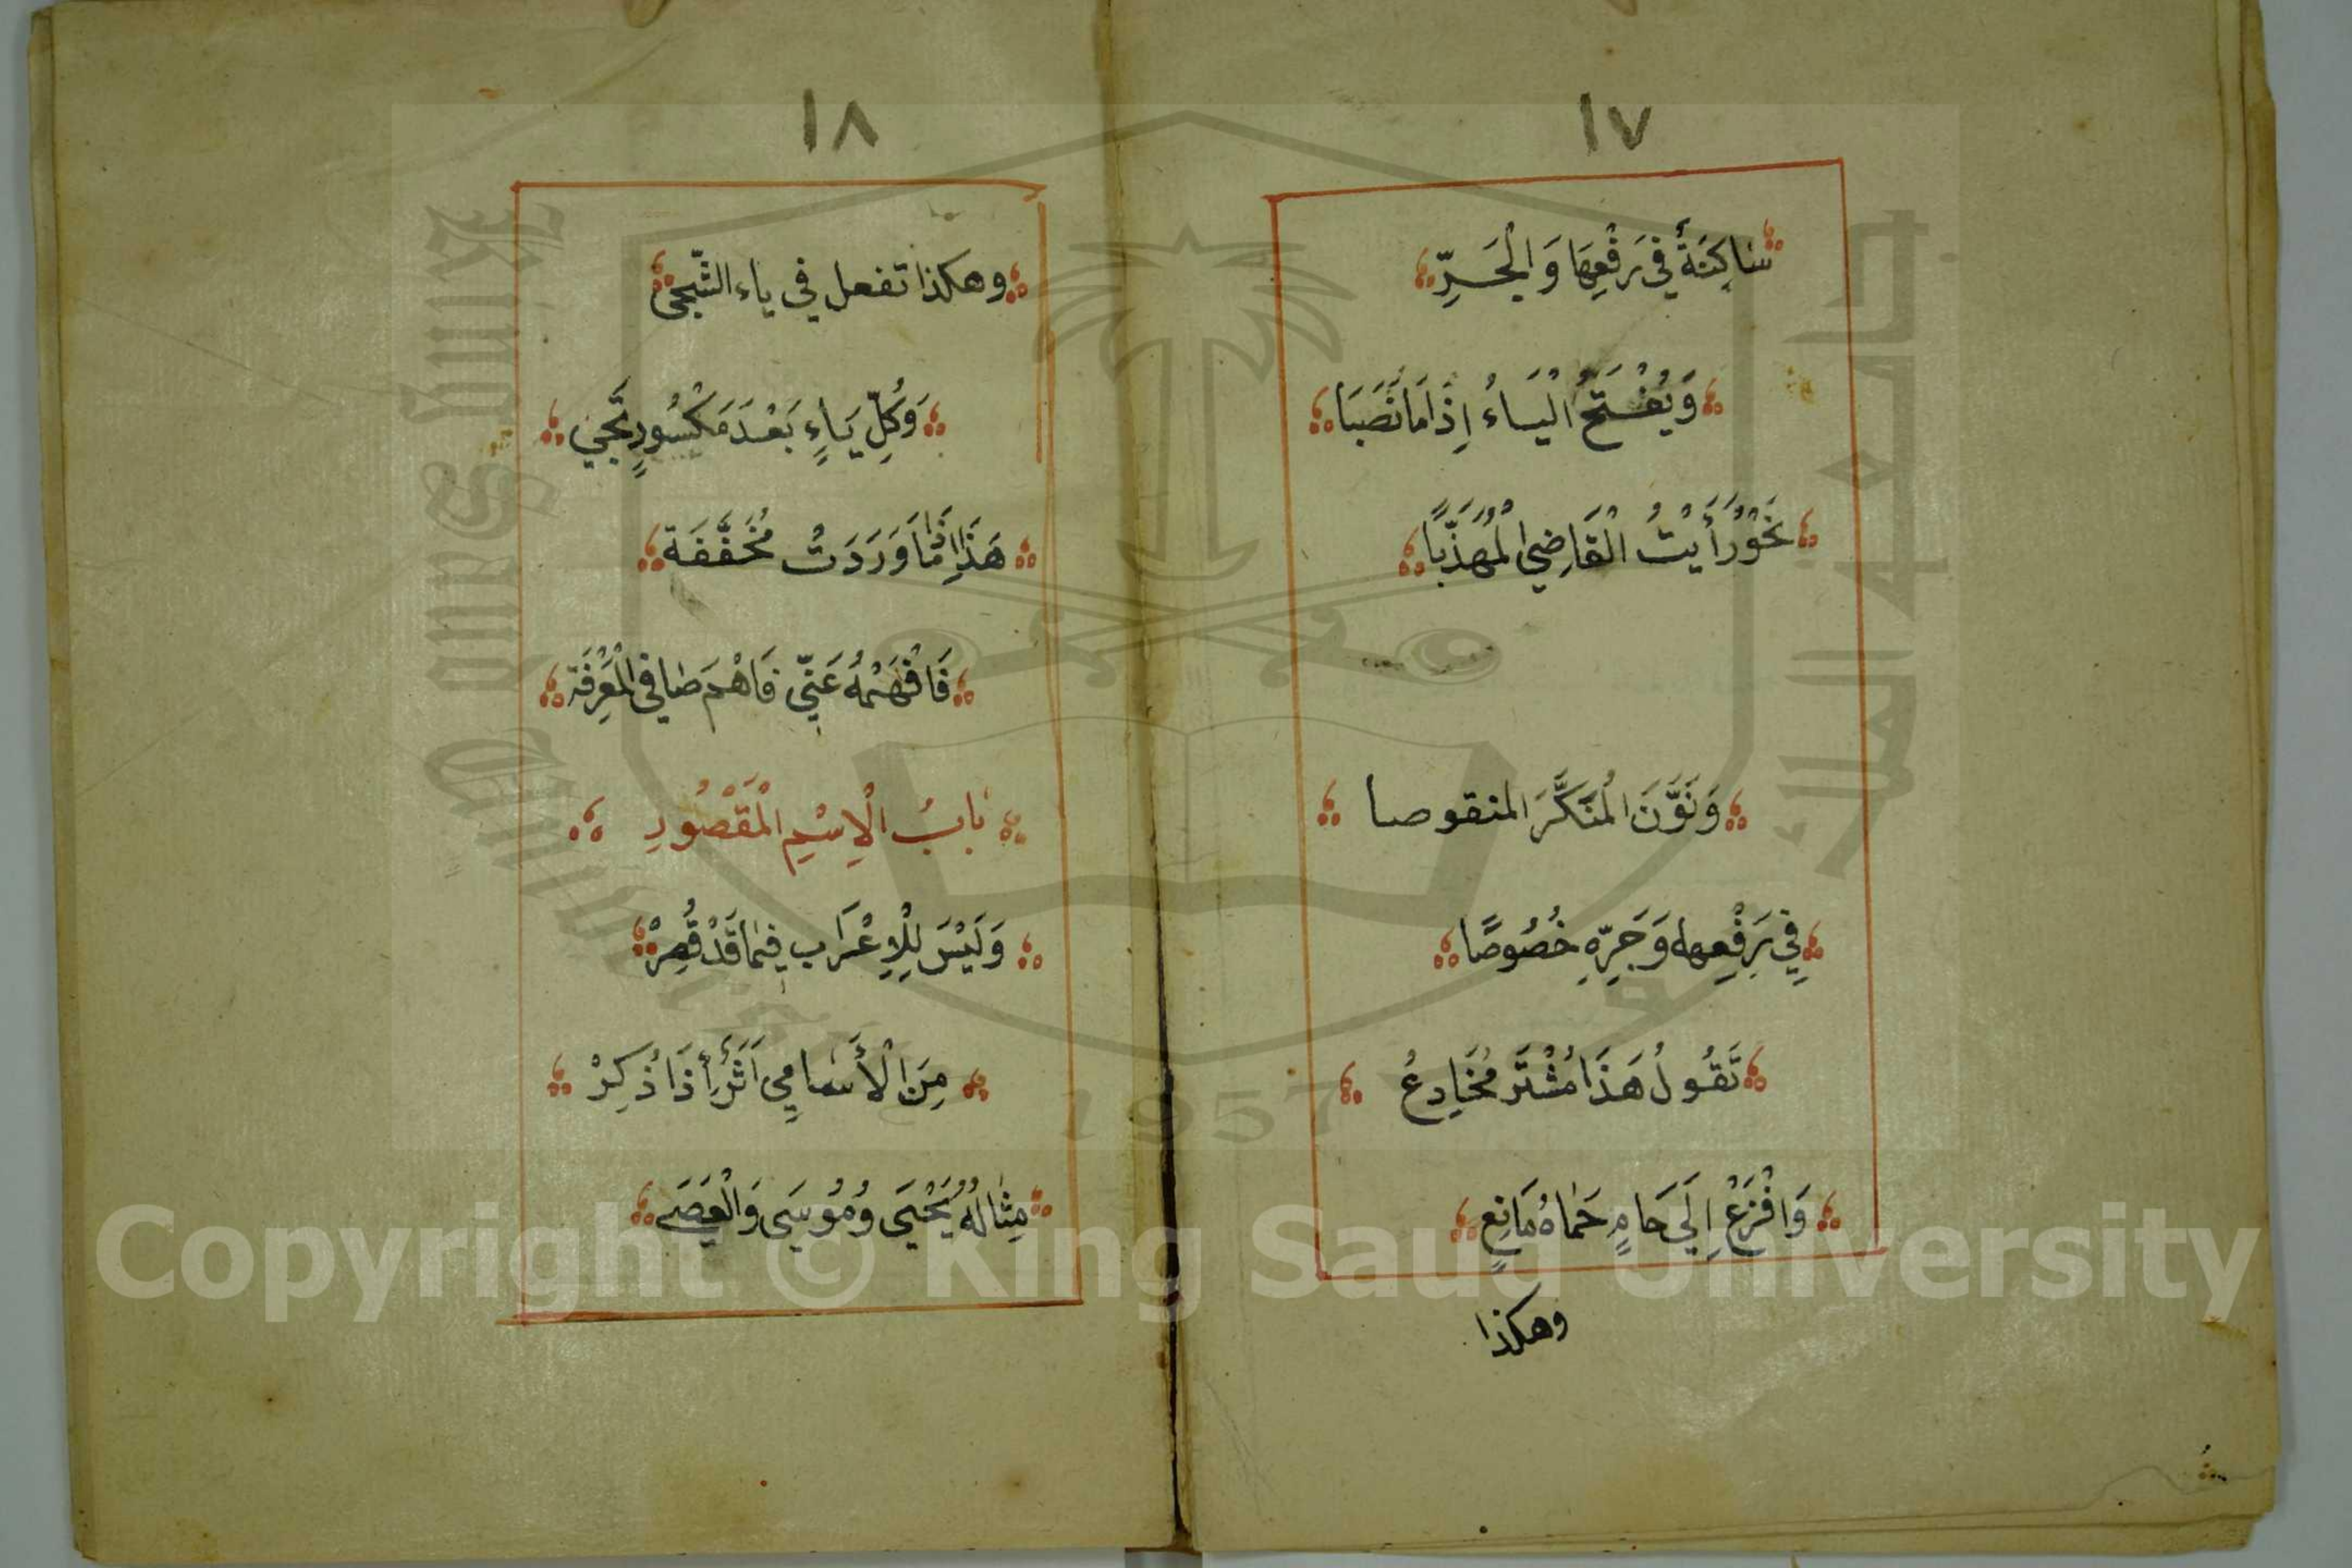 ١٧
سَاكِنَةٌ فِي رَفْعِهَا وَالْجَرِّ
وَيُفْتَحُ الْيَاءُ إِذَا مَا نَصَبَا
نَحْوُ رَأَيْتُ الْقَاضِيَ الْمُهَذَّبَا
وَنَوَّنَ الْمُنَكَّرَ المنقوصا
فِي رَفْعِهِ وَجَرِّهِ خُصُوصًا
تَقُولُ هَذَا مُشْتَرٍ مُخَادِعُ
وَافْزَعْ إِلَي حَامٍ حَمَاهُ مَانِعٍ
وهكذا
١٨
وهكذا تفعل في ياء الشّجي
وَكُلِّ يَاءٍ بَعْدَ مَكْسُورٍ تَجِي
هَذَا إِذَا مَا وَرَدَتْ مُخَفَّفَة
فَافْهَمْهُ عَنِّي فَاهْمَ صافي الْمَعْرِفَة
بَابُ الْاِسْمِ الْمَقْصُورِ
وَلَيْسَ لِلْاِعْرَابِ فِيمَا قَدْ قُصِرْ
مِنَ الْأَسَامِي اَثَرٌ إِذَا ذُكِرْ
مِثَالُهُ يَحْيَى وَمُوسَى وَالْعَصَى
Copyright © King Saud University
King Saud University
جامعة الملك سعود
1957